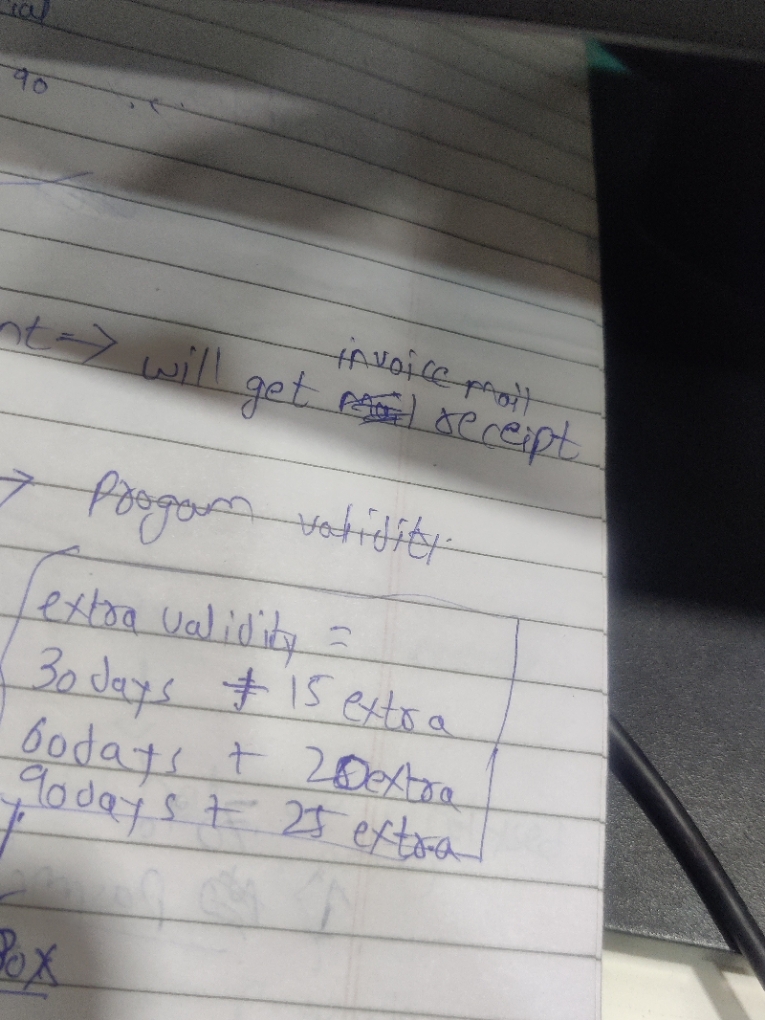 ial
90
nt => will get invoice mail receipt
-> Progam validity.
extra validity =
30 days + 15 extra
60 days + 20 extra
90 days + 25 extra
y.
Box